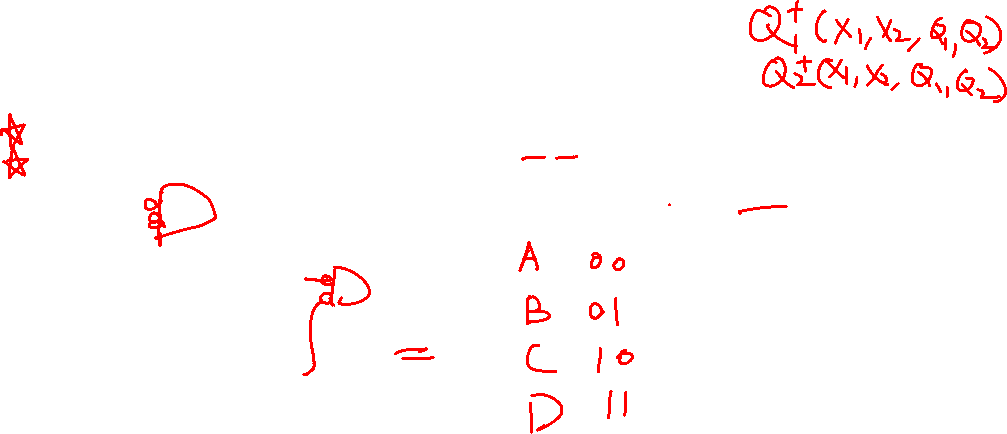 Q₁⁺(X₁, X₂, Q₁, Q₂)
Q₂⁺(X₁, X₂, Q₁, Q₂)
A 00
B 01
C 10
D 11